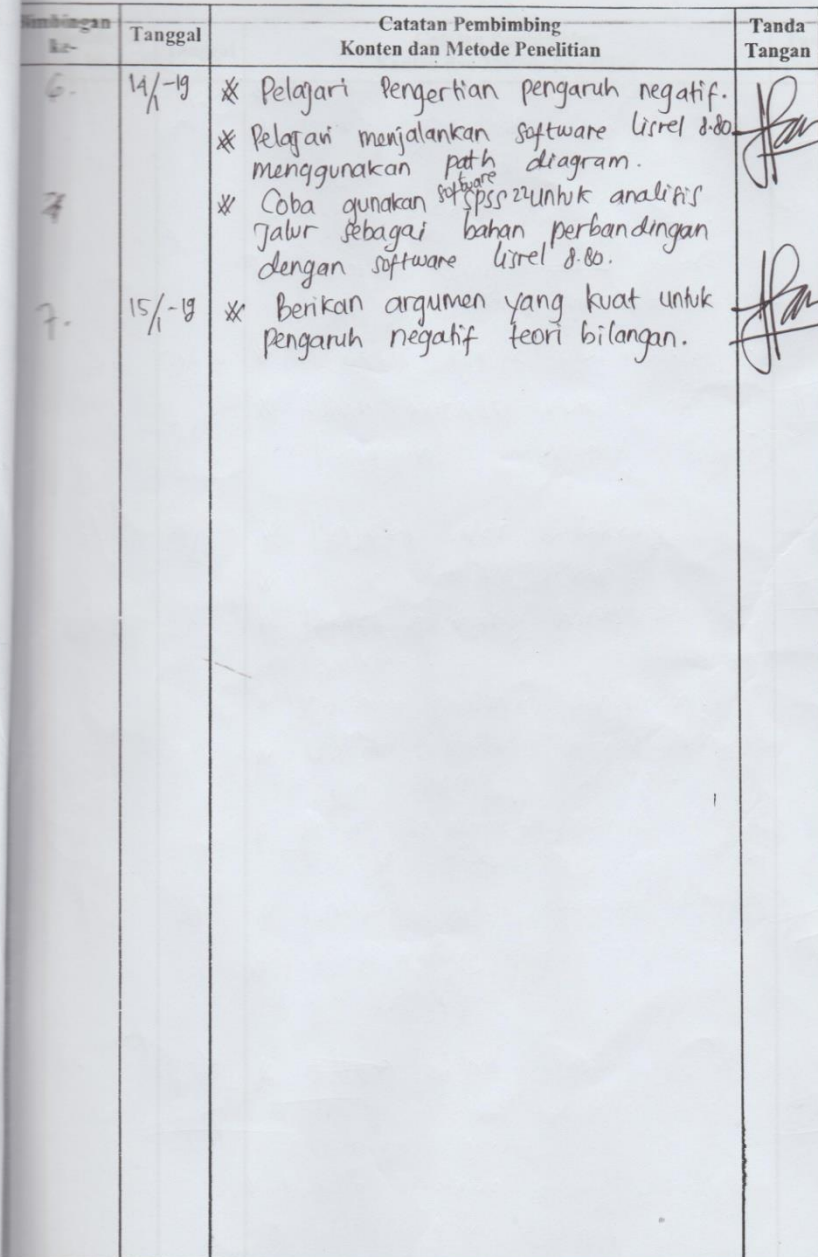 Bimbingan Ke-
Tanggal
Catatan Pembimbing
Konten dan Metode Penelitian
Tanda
Tangan
6.
14/1-19
* Pelajari Pengertian pengaruh negatif.
* Pelajari menjalankan software lisrel 8.80
menggunakan path diagram.
* Coba gunakan software SPSS 22 untuk analisis
Jalur sebagai bahan perbandingan
dengan software lisrel 8.80.
7.
15/1-19
* Berikan argumen yang kuat untuk
pengaruh negatif teori bilangan.